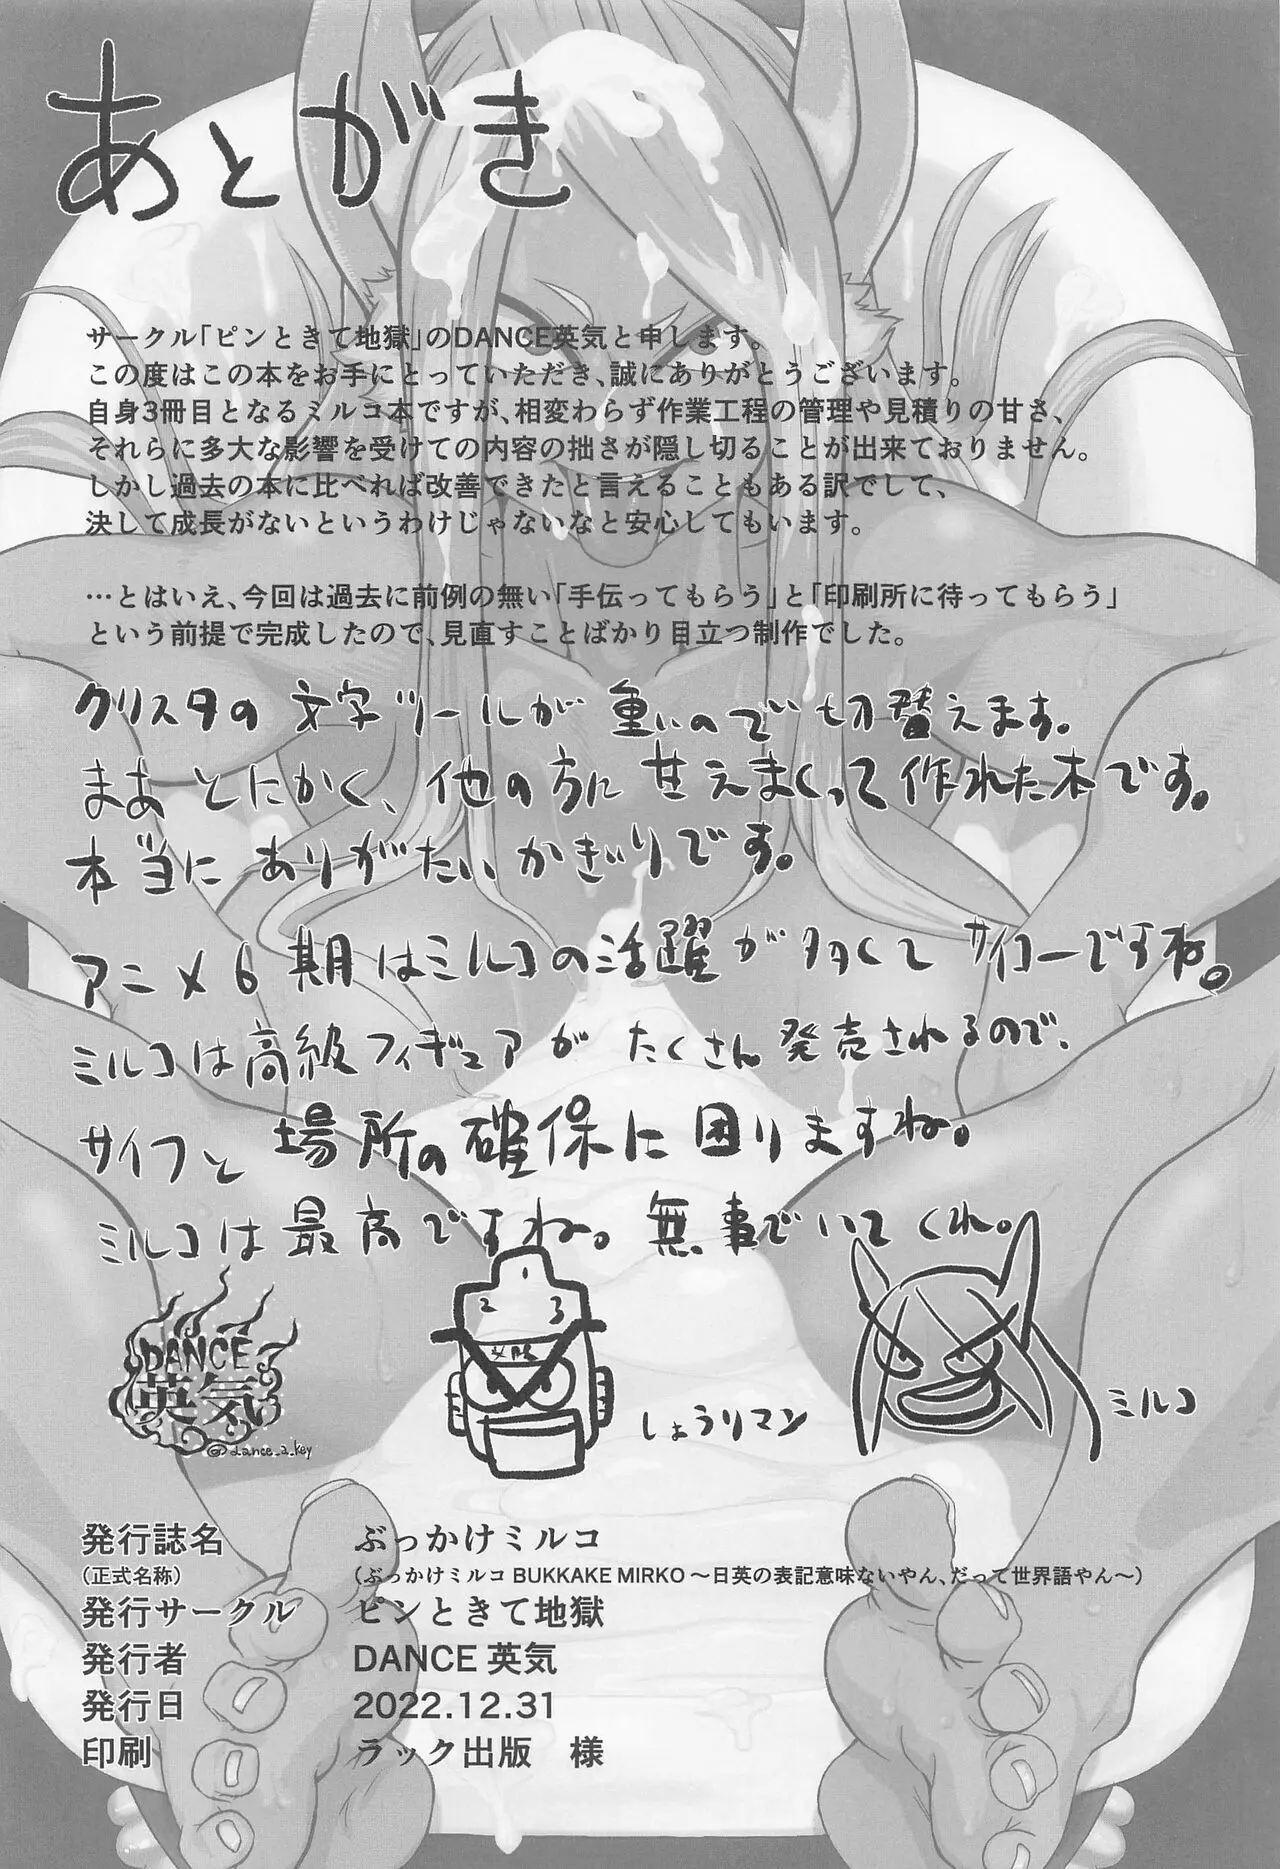 あとがき
サークル「ピンときて地獄」のDANCE英気と申します。
この度はこの本をお手にとっていただき、誠にありがとうございます。
自身3冊目となるミルコ本ですが、相変わらず作業工程の管理や見積りの甘さ、
それらに多大な影響を受けての内容の拙さが隠し切ることが出来ておりません。
しかし過去の本に比べれば改善できたと言えることもある訳でして、
決して成長がないというわけじゃないなと安心してもいます。
…とはいえ、今回は過去に前例の無い「手伝ってもらう」と「印刷所に待ってもらう」
という前提で完成したので、見直すことばかり目立つ制作でした。
クリスタの文字ツールが重いので切替えます。
まあとにかく、他の方に甘えまくって作れた本です。
本当にありがたいかぎりです。
アニメ6期はミルコの活躍が多くてサイコーですね。
ミルコは高級フィギュアがたくさん発売されるので、
サイフと場所の確保に困りますね。
ミルコは最高ですね。無事でいてくれ。
DANCE
英気
@dance_a_key
1
2 3
しょうりマン
ミルコ
発行誌名 ぶっかけミルコ
(正式名称) (ぶっかけミルコ BUKKAKE MIRKO～日英の表記意味ないやん、だって世界語やん～)
発行サークル ピンときて地獄
発行者 DANCE 英気
発行日 2022.12.31
印刷 ラック出版 様